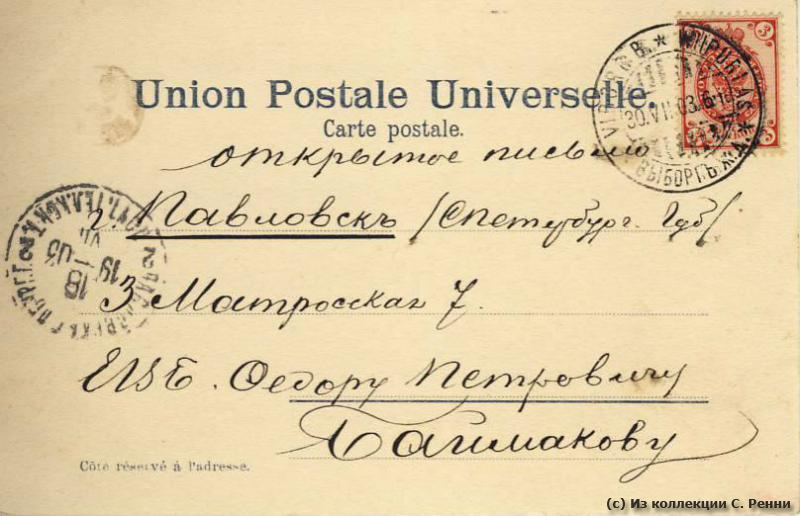 Union Postale Universelle.
Carte postale.
открытое письмо
г. Павловскъ /Спетербург. Губ/
3 Матросская 7.
Ѳедору Петровичу
Башмакову
Côté réservé á l'adresse.
WIPURI AS.
30.VII.03.
ВЫБОРГЪ Ж.Д.
3
3
19
03
(c) Из коллекции С. Ренни